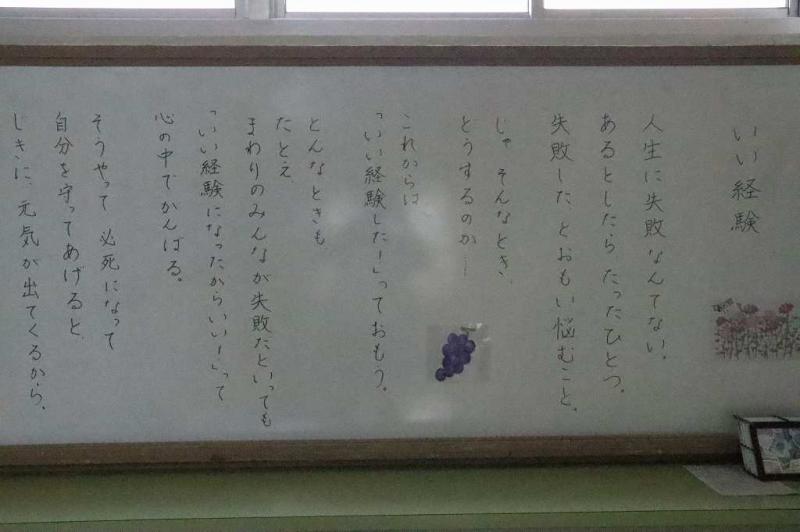 いい経験
人生に失敗なんてない。
あるとしたら、たったひとつ。
失敗した、とおもい悩むこと。
じゃ、そんなとき、
どうするのか…
これからは
「いい経験した！」っておもう。
とんなときも
たとえ
まわりのみんなが失敗だといっても
「いい経験になったからいい！」って
心の中でがんばる。
そうやって 必死になって
自分を守ってあげると、
じきに、元気が出てくるから。